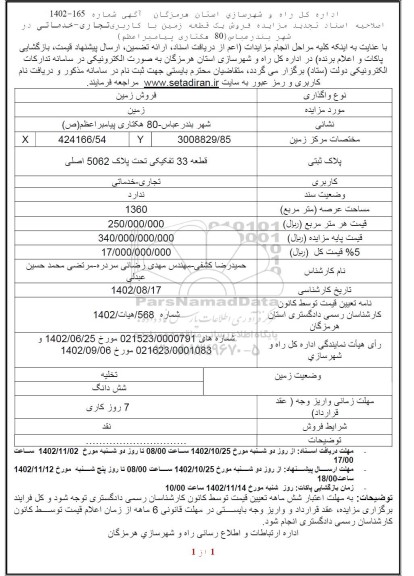 اداره کل راه و شهرسازی استان هرمزگان آگهی شماره 165-1402
اصلاحیه اسناد تجدید مزایده فروش یک قطعه زمین با کاربری تجاری-خدماتی در شهر بندرعباس (80 هکتاری پیامبراعظم)
با عنایت به اینکه کلیه مراحل انجام مزایدات (اعم از دریافت اسناد، ارائه تضمین، ارسال پیشنهاد قیمت، بازگشایی
پاکات و اعلام برنده) در اداره کل راه و شهرسازی استان هرمزگان به صورت الکترونیکی در سامانه تدارکات
الکترونیکی دولت (ستاد) برگزار می گردد، متقاضیان محترم بایستی جهت ثبت نام در سامانه مذکور و دریافت نام
کاربری و رمز عبور به سایت www.setadiran.ir مراجعه فرمایند.
نوع واگذاری فروش زمین
مورد مزایده زمین
نشانی شهر بندرعباس-80 هکتاری پیامبراعظم(ص)
مختصات مرکز زمین 3008829/85 Y 424166/54 X
پلاک ثبتی قطعه 33 تفکیکی تحت پلاک 5062 اصلی
کاربری تجاری-خدماتی
وضعیت سند ندارد
مساحت عرصه (متر مربع) 1360
قیمت هر متر مربع (ریال) 250/000/000
قیمت پایه مزایده (ریال) 340/000/000/000
5% قیمت کل (ریال) 17/000/000/000
نام کارشناس حمیدرضا کشفی-مهندس مهدی رضائی سردره-مرتضی محمد حسین عبدلی
تاریخ کارشناسی 1402/08/17
نامه تعیین قیمت توسط کانون کارشناسان رسمی دادگستری استان هرمزگان شماره 568/هیات/1402
رأی هیأت نمایندگی اداره کل راه و شهرسازی شماره های 021523/0000791 مورخ 1402/06/25 و 021623/0001083 مورخ 1402/09/06
وضعیت زمین تخلیه
شش دانگ
مهلت زمانی واریز وجه ( عقد قرارداد) 7 روز کاری
شرایط فروش نقد
توضیحات ................................
- مهلت دریافت اسناد: از روز دو شنبه مورخ 1402/10/25 ساعت 08/00 تا روز دو شنبه مورخ 1402/11/02 ساعت 17/00
- مهلت ارسال پیشنهاد: از روز دو شنبه مورخ 1402/10/25 ساعت 08/00 تا روز پنج شنبه مورخ 1402/11/12 ساعت 18/00
- زمان بازگشایی پاکات: روز شنبه مورخ 1402/11/14 ساعت 10/00
توضیحات: به مهلت اعتبار شش ماهه تعیین قیمت توسط کانون کارشناسان رسمی دادگستری توجه شود و کل فرایند
برگزاری مزایده، عقد قرارداد و واریز وجه بایستی در مهلت قانونی 6 ماهه از زمان اعلام قیمت توسط کانون
کارشناسان رسمی دادگستری انجام شود.
اداره ارتباطات و اطلاع رسانی راه و شهرسازی هرمزگان
1 از 1
ParsNamadData